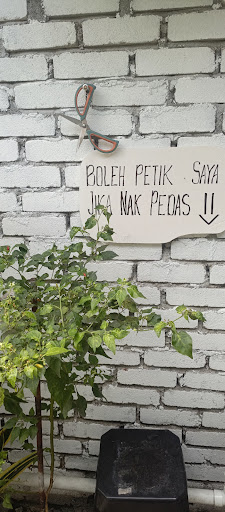 BOLEH PETIK SAYA
JIKA NAK PEDAS !!